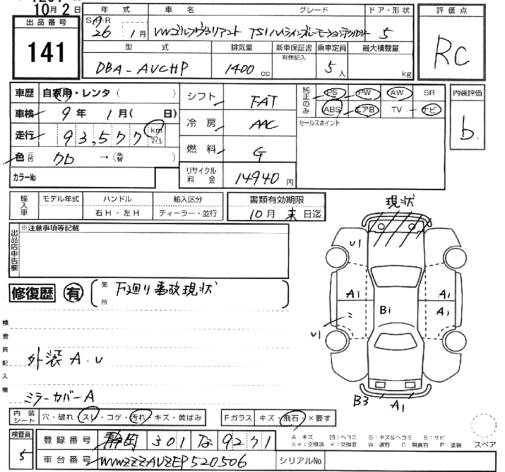 10月2日
出品番号
141
年式 車名 グレード ドア・形状
26 1月 VWゴルフヴァリアント TSI 5
型式 排気量 新車保証書 乗車定員 最大積載量
有無記入
DBA-AUCHP 1400cc 5人 kg
評価点
RC
車歴 自家用・レンタ( )
車検 9年 1月( 日)
走行 93,577 km マイル
色 クロ →(替 )
カラーNo.
シフト FAT
冷房 AAC
燃料 G
リサイクル料金 14940円
純正のみ PS PW AW SR
ABS エアB TV ナビ
セールスポイント
内装評価
b
輸入車 モデル年式 ハンドル 輸入区分
右H・左H ディーラー・並行
書類有効期限
10月末日迄
出品店申告欄 ※注意事項等記載
修復歴 有 箇所 下廻り事故現状
検査員記入欄
外装A.U
ミラーカバーA
現状
U1
A1 B1 A1
U1
B3 A1
内装シート 穴・破れ スレ・コゲ・汚れ・キズ・黄ばみ Fガラス キズ・飛石・×要す
検査員 5
登録番号 静岡 301 な 9271
車台番号 WVWZZZAUZEP520506 シリアルNo.
A:キズ U:ヘコミ B:キズ&ヘコミ S:サビ
スペア